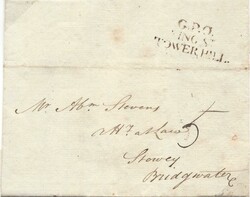 G.P.O.
KING St
TOWER HILL.
Mr. Abm. Stevens
5
Stowey
Bridgwater